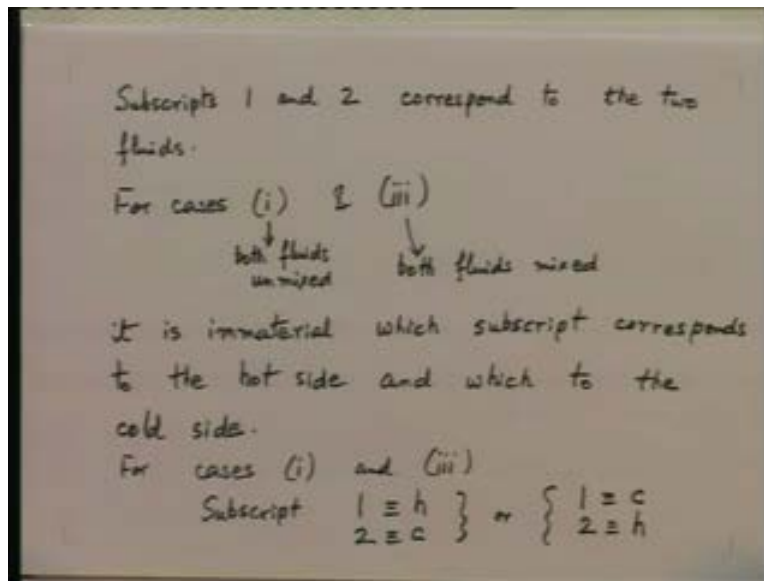 Subscripts 1 and 2 correspond to the two
fluids.
For cases (i) & (iii)
both fluids unmixed both fluids mixed
it is immaterial which subscript corresponds
to the hot side and which to the
cold side.
For cases (i) and (iii)
Subscript 1 ≡ h } or { 1 ≡ c
2 ≡ c 2 ≡ h